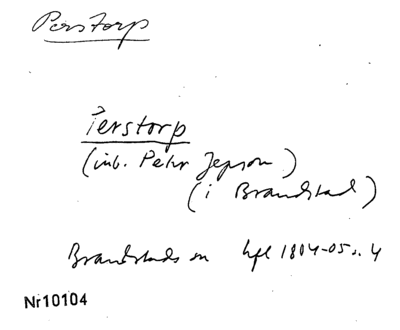 Perstorp
Perstorp
(inb. Pehr Jepson)
(i Brandstad)
Brandstads sn hfl 1804-05 s. 4
Nr10104